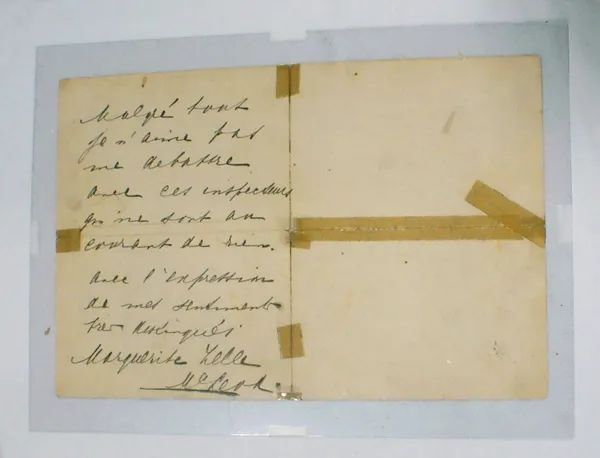 Malgré tout
je n'aime pas
me debattre
avec ces inspecteurs
qui ne sont au
courant de rien.
avec l'expression
de mes sentiments
tres distingués
Marguerite Zelle
McLeod